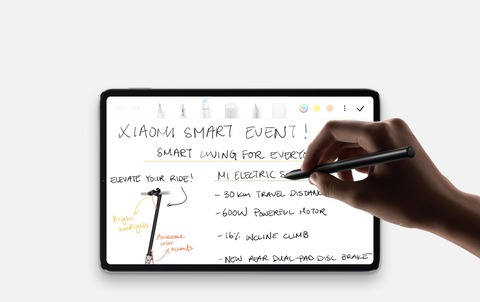 XIAOMI SMART EVENT!
SMART LIVING FOR
ELEVATE YOUR RIDE!
MI ELECTRIC
- 30km TRAVEL
- 600W POWERFUL MOTOR
Bright headlights
- 16% INCLINE CLIMB
Awesome color accents
- NEW REAR DUAL-PAD DISC BRAKE